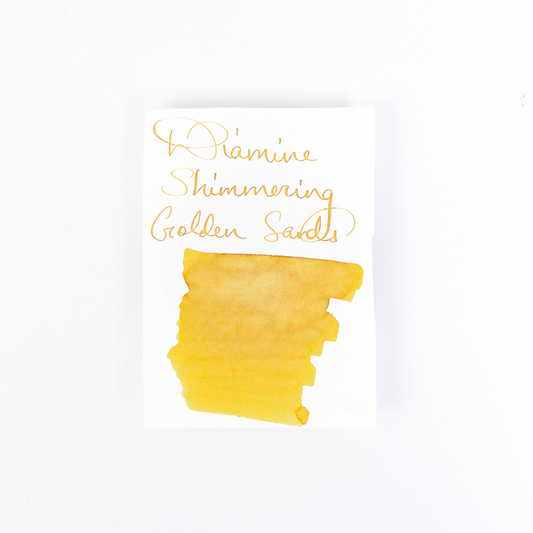 Diamine
Shimmering
Golden Sands